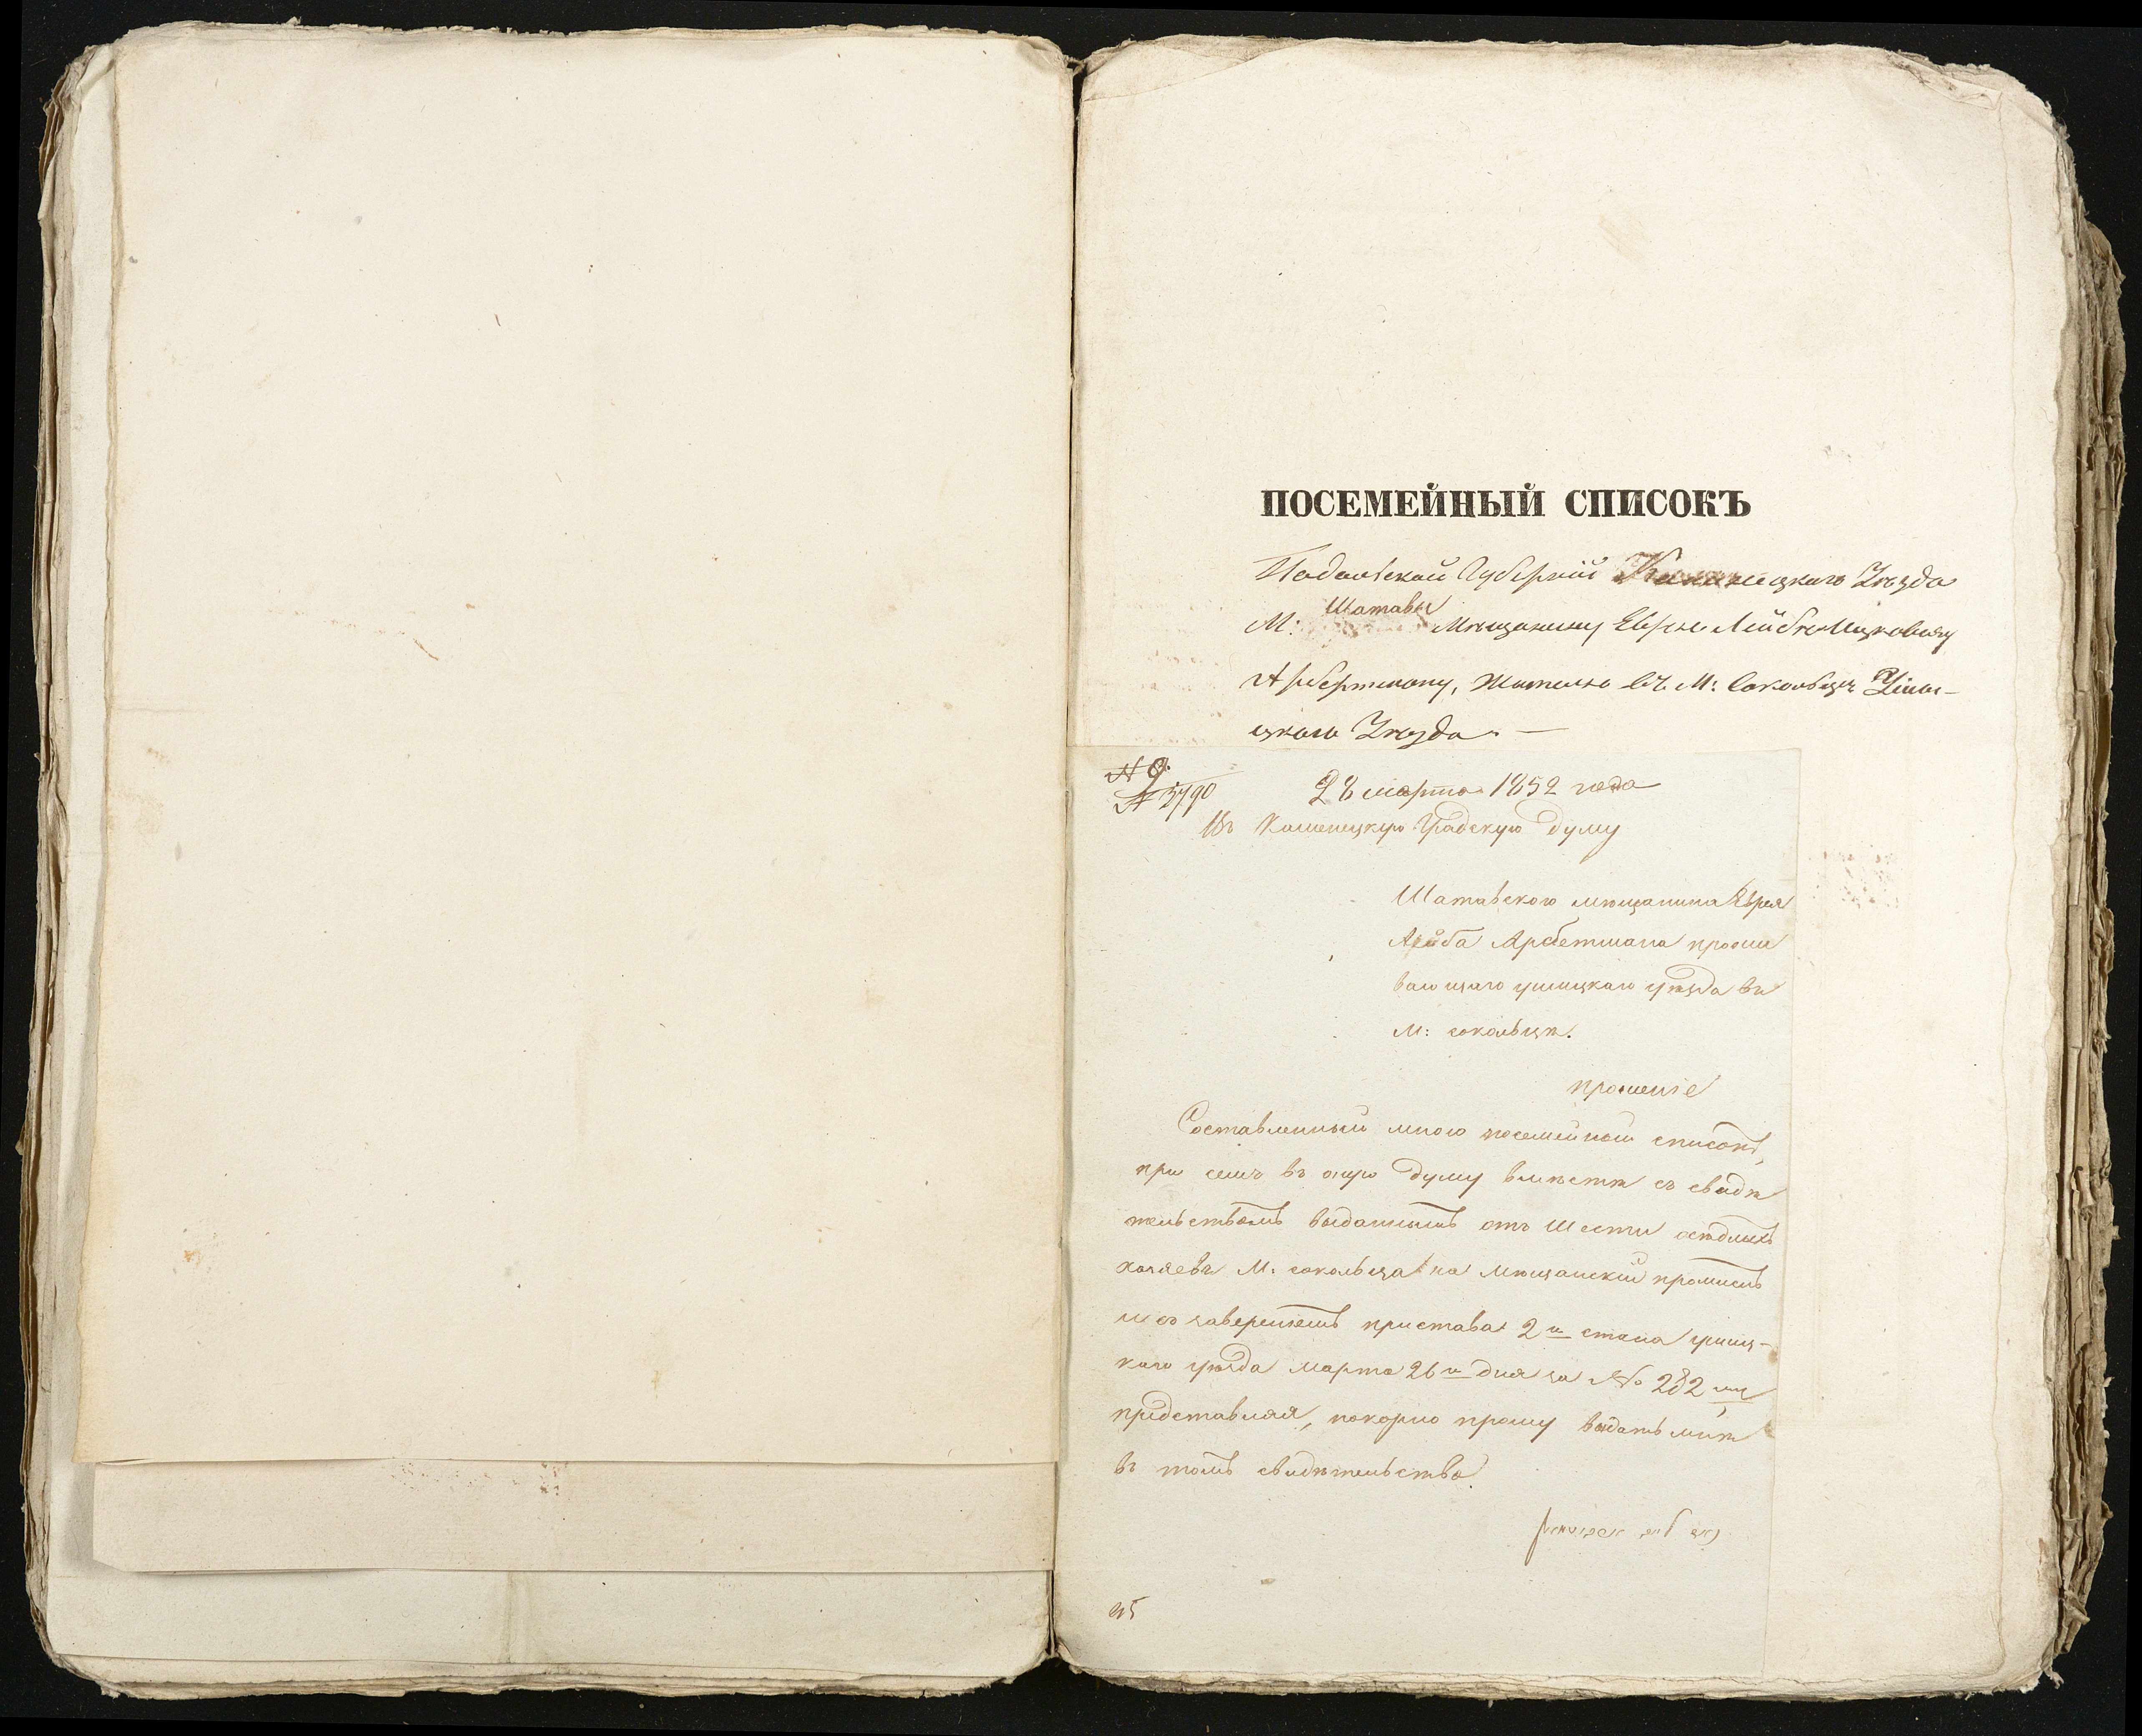 ПОСЕМЕЙНЫЙ СПИСОКЪ
Подольской Губерніи Каменецкаго Уѣзда
М: Шатавы Мѣщанину Еврею Лейбѣ Ицковичу
Арбетману, Жителю въ М: Сокольцѣ Ушиц-
цкаго Уѣзда. —
№ 9.
№ 3790
28 марта 1852 года
Въ Каменецкую Градскую Думу
Шатавского мѣщанина Еврея
Лейба Арбетмана прожи
вающаго ушицкаго уѣзда въ
М: сокольцѣ.
прошеніе
Составленный мною посемейный списокъ,
при семъ въ оную Думу вмѣстѣ съ свидѣ
тельствомъ выданнымъ отъ Шести осѣдлыхъ
хозяевъ М. сокольца на мѣщанскій промыслъ
и съ заверениемъ пристава 2го стана ушиц-
каго уѣзда марта 26го дня за № 282мъ
представляя, покорно прошу выдать мнѣ
въ томъ свидѣтельство.
45